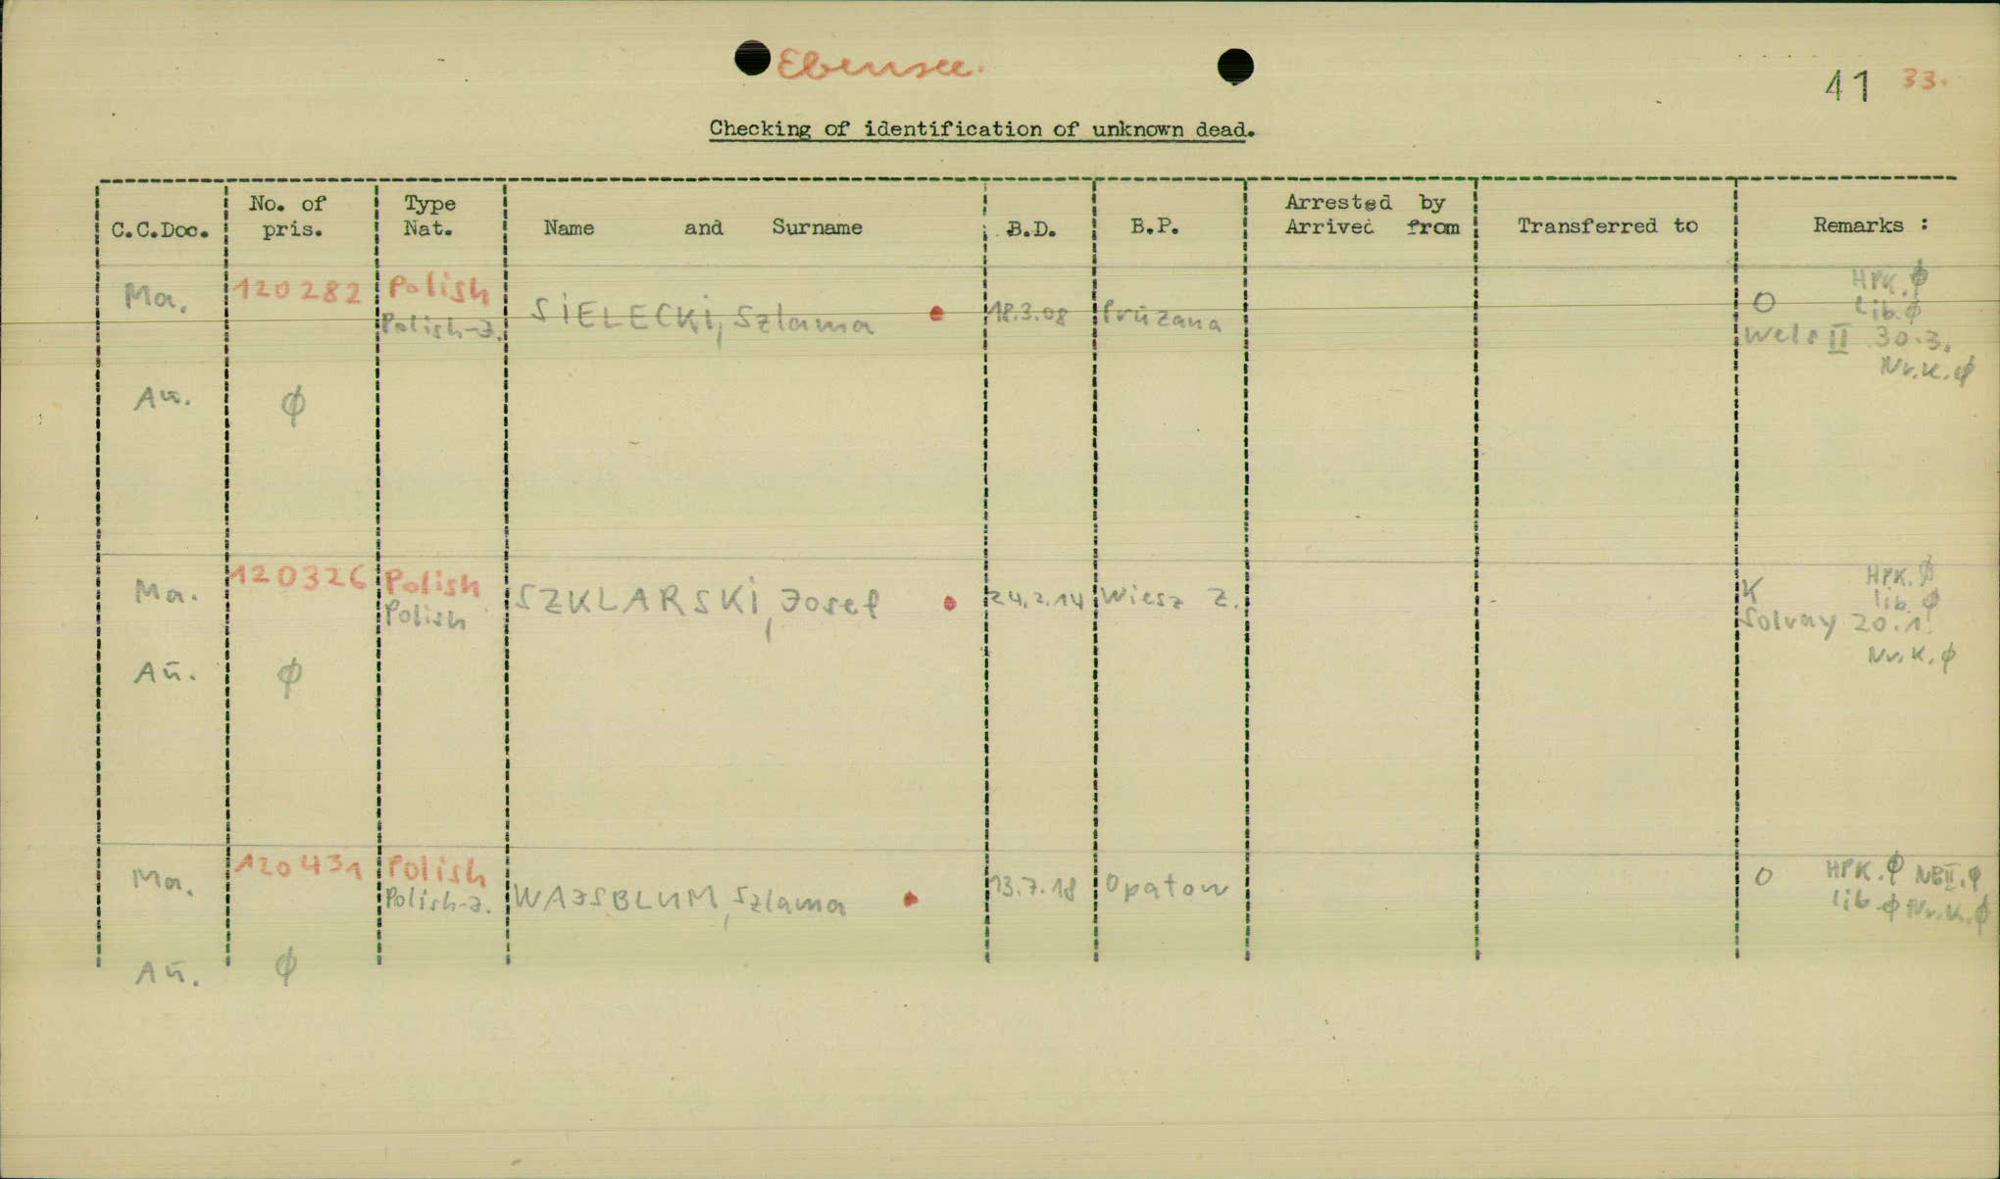 Ebensee.
41 33.
Checking of identification of unknown dead.
C.C.Doc. No. of pris. Type Nat. Name and Surname B.D. B.P. Arrested by Arrived from Transferred to Remarks :
Ma. 120282 Polish SIELECKI, Szlama 18.3.08 Prūzana O HPK. ϕ
Polish-J. Lib. ϕ
Wels II 30.3.
Nr.K. ϕ
Aū. ϕ
Ma. 120326 Polish SZKLARSKI, Josef 24.2.14 Wiesz Z. K HPK. ϕ
Polish lib. ϕ
Solvay 20.1.
Nr.K. ϕ
Aū. ϕ
Ma. 120431 Polish WAJSBLUM, Szlama 13.7.18 Opatow O HPK. ϕ NBII. ϕ
Polish-J. lib ϕ Nr.K. ϕ
Aū. ϕ